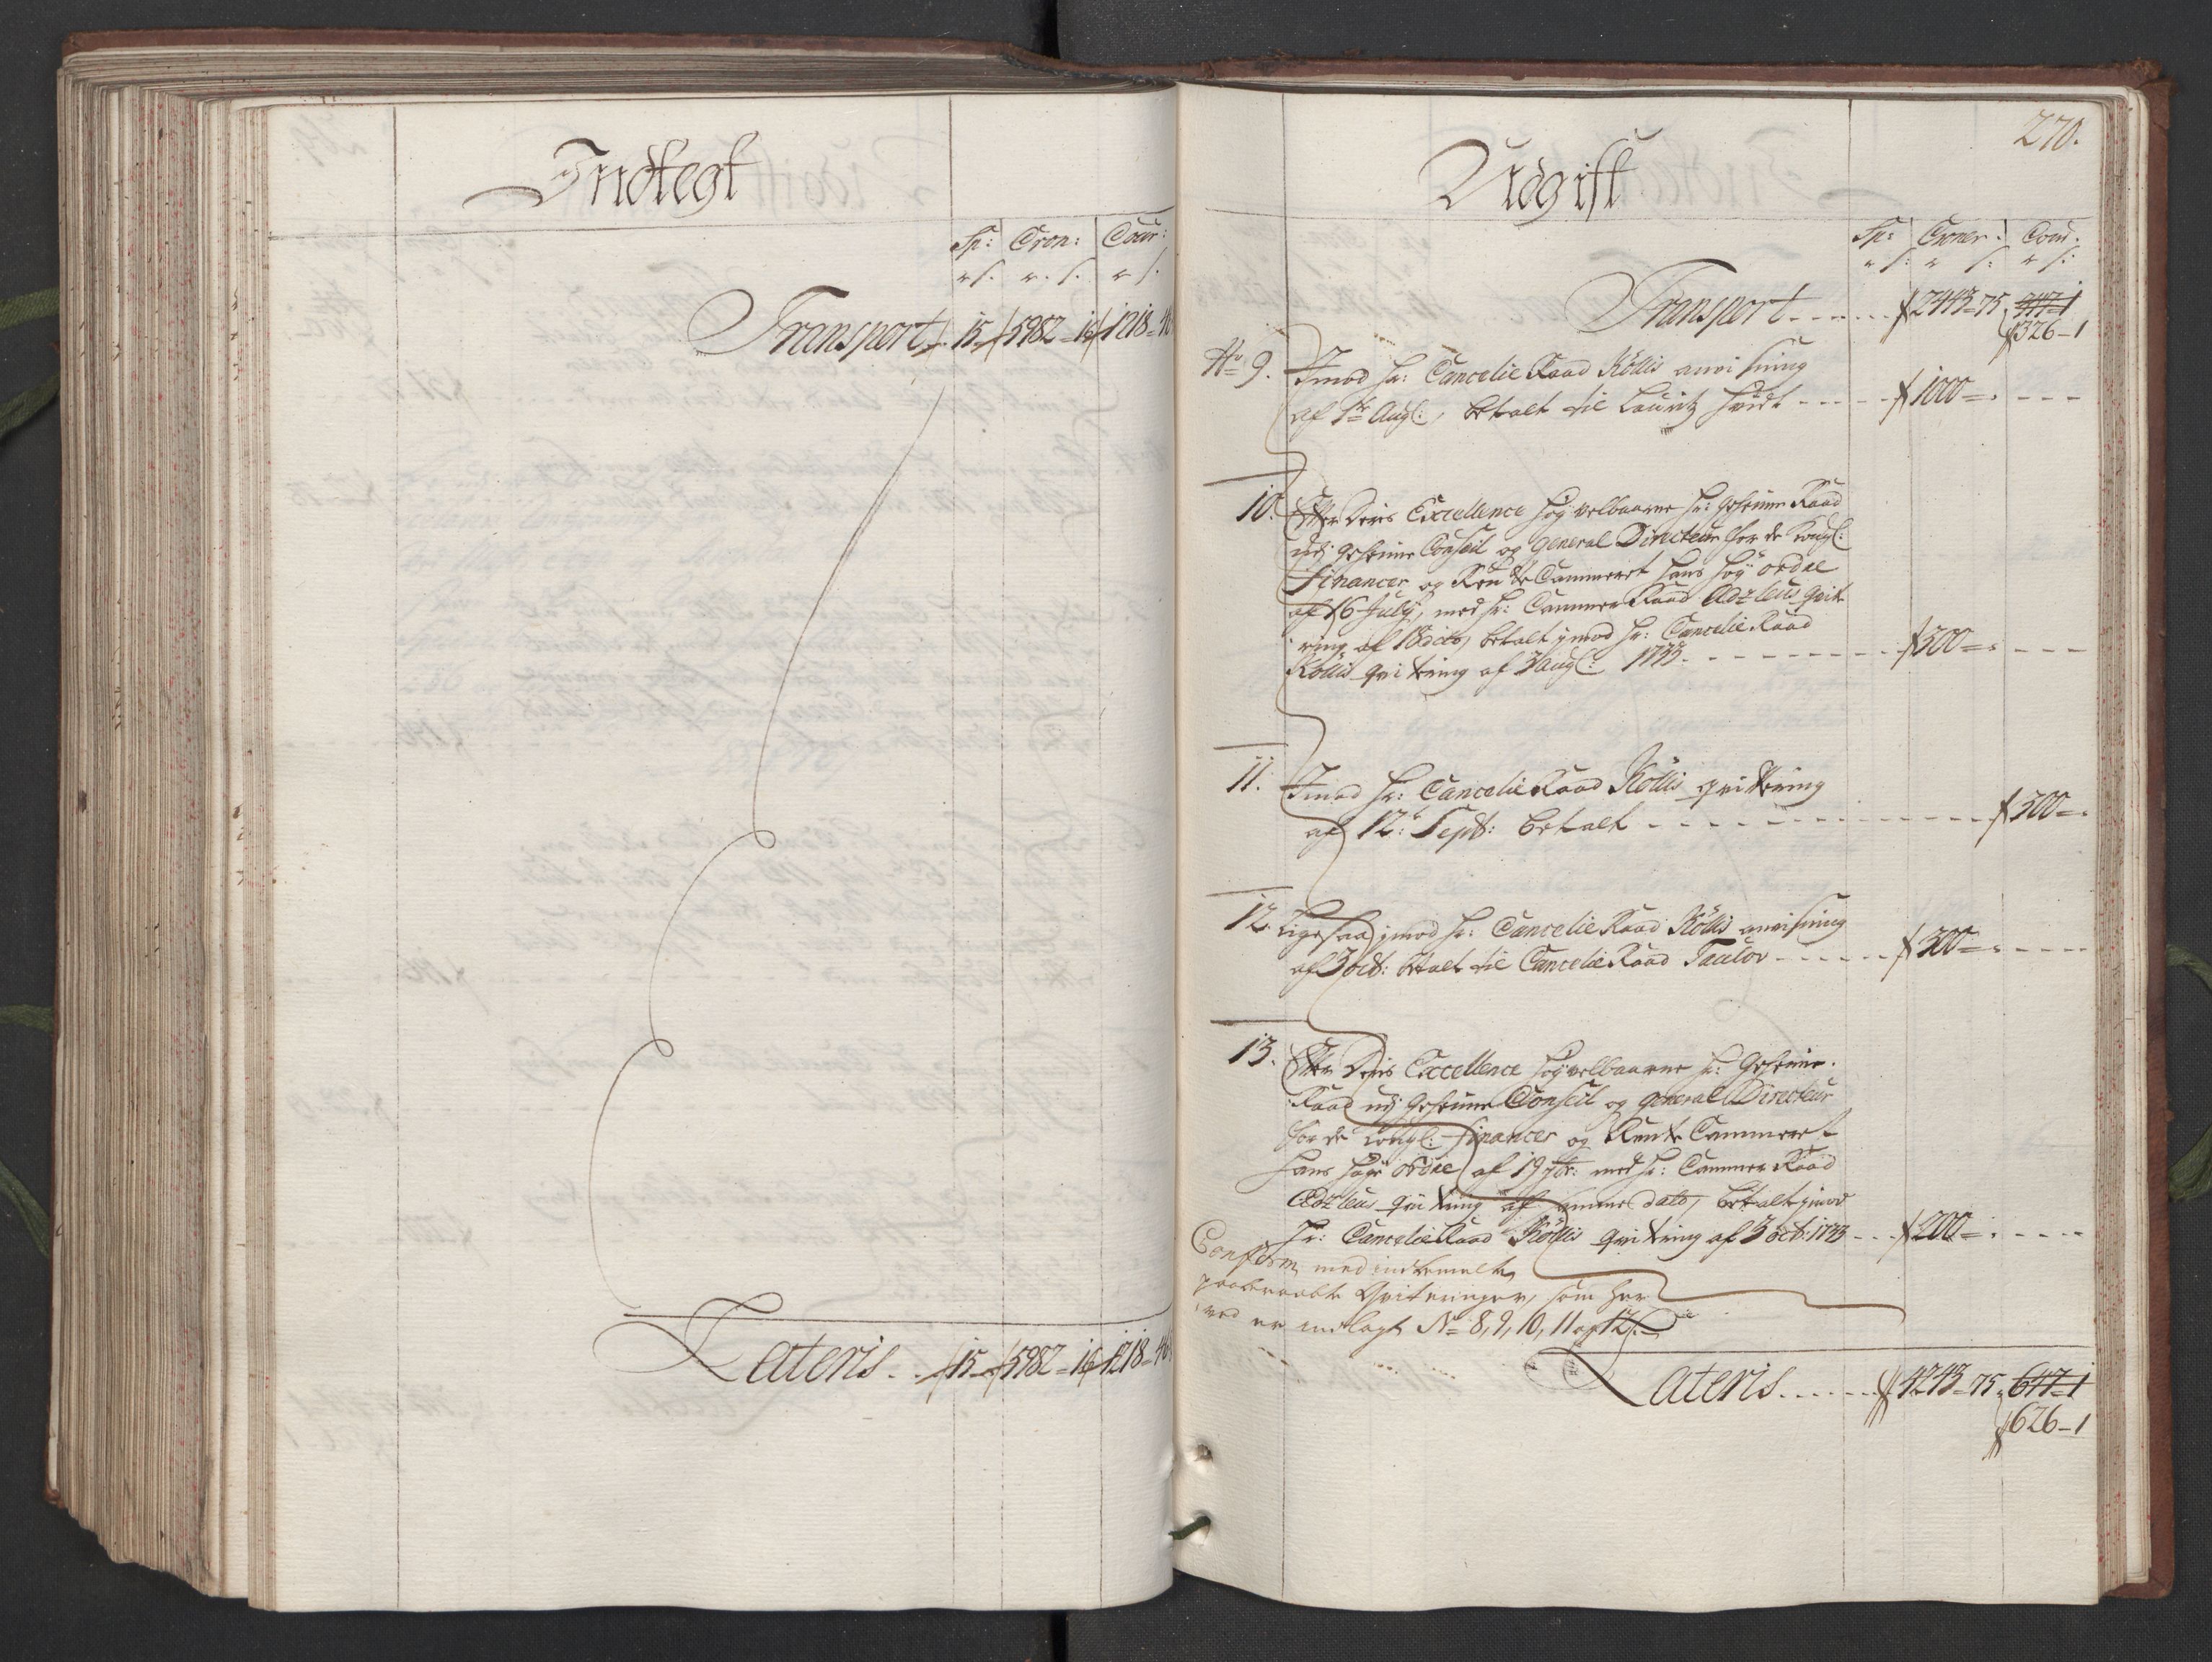 Indtegt
Sp: Cron: Cour:
r s. r. s. r s.
Transport 15 5982=16 1218=46
Lateris 15 5982=16 1218=46
270.
Udgift
Sp: Croner: Cour.
r s: r s: r s:
Transport 2443=75 347=1
326-1
No 9. Imod Hr: Cancelie Raad Röllis anvisning
af 1te Augl:, betalt til Lauritz Hvidt 1000=
10. Efter Deris Excellence Høyvelbaarne Hr: geheime Raad
udj geheime Conseil og General Directeur for de Kongl:
Financer og Rente Cammeret hans høy ordre
af 16 July, med Hr: Cammer Raad Adzleus qvit
ring af 18 dito, betalt imod Hr: Cancelie Raad
Röllis qvittering af 3 augl: 1733. 300=
11. Imod Hr: Cancelie Raad Röllis qvittering
af 12: Septb: betalt 300=
12. Ligesaa imod Hr: Cancelie Raad Röllis anvisning
af 3 octb: betalt til Cancelie Raad Taulov 300=
13. Efter Deris Excellence Høyvelbaarne Hr: Geheime
Raad udj geheime Conseil og General Directeur
for de Kongl: Financer og Rente Cammeret
hans høye ordre af 19 7br: med Hr: Cammer Raad
Adzleus qvittering af samme dato, betalt imod
Hr: Cancelie Raad Röllis qvittering af 3 oct: 1733 200=
Conform med indbemelte
paaberaabte Qvitteringer, som her
ved er indlagt No 8, 9, 10, 11 og 12
Lateris 4243=75 647=1
626-1